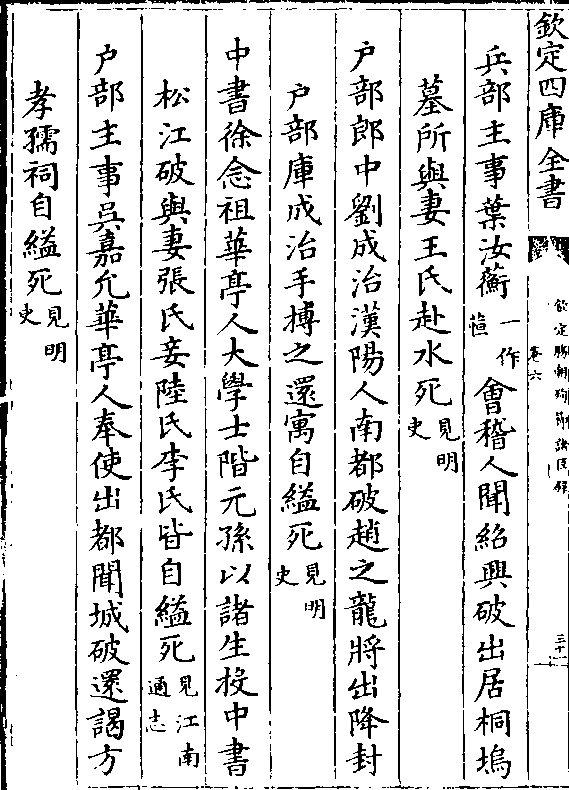 欽定四庫全書
欽定勝朝殉節諸臣錄
卷六
三十一
兵部主事葉汝蘅一作𦽦會稽人聞紹興破出居桐塢
墓所與妻王氏赴水死見明史
户部郎中劉成治漢陽人南都破趙之龍將出降封
户部庫成治手搏之還寓自縊死見明史
中書徐念祖華亭人大學士階元孫以諸生授中書
松江破與妻張氏妾陸氏李氏皆自縊死見江南通志
户部主事吳嘉允華亭人奉使出都聞城破還謁方
孝孺祠自縊死見明史